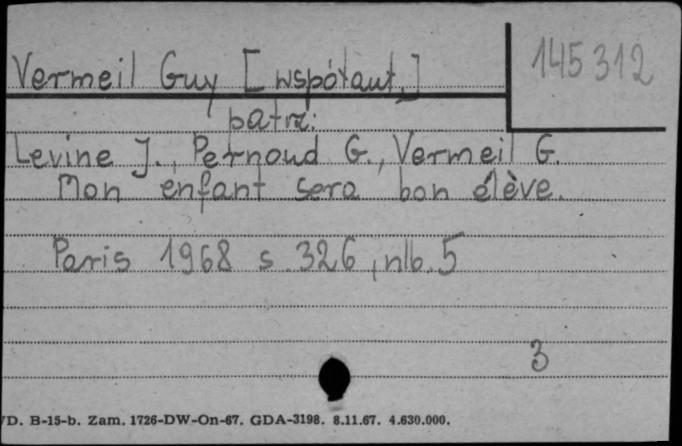 Vermeil Guy [współaut.]
145312
patrz:
Levine J., Pernoud G., Vermeil G.
Mon enfant sera bon élève.
Paris 1968 s. 326, nlb. 5
3
/D. B-15-b. Zam. 1726-DW-On-67. GDA-3198. 8.11.67. 4.630.000.